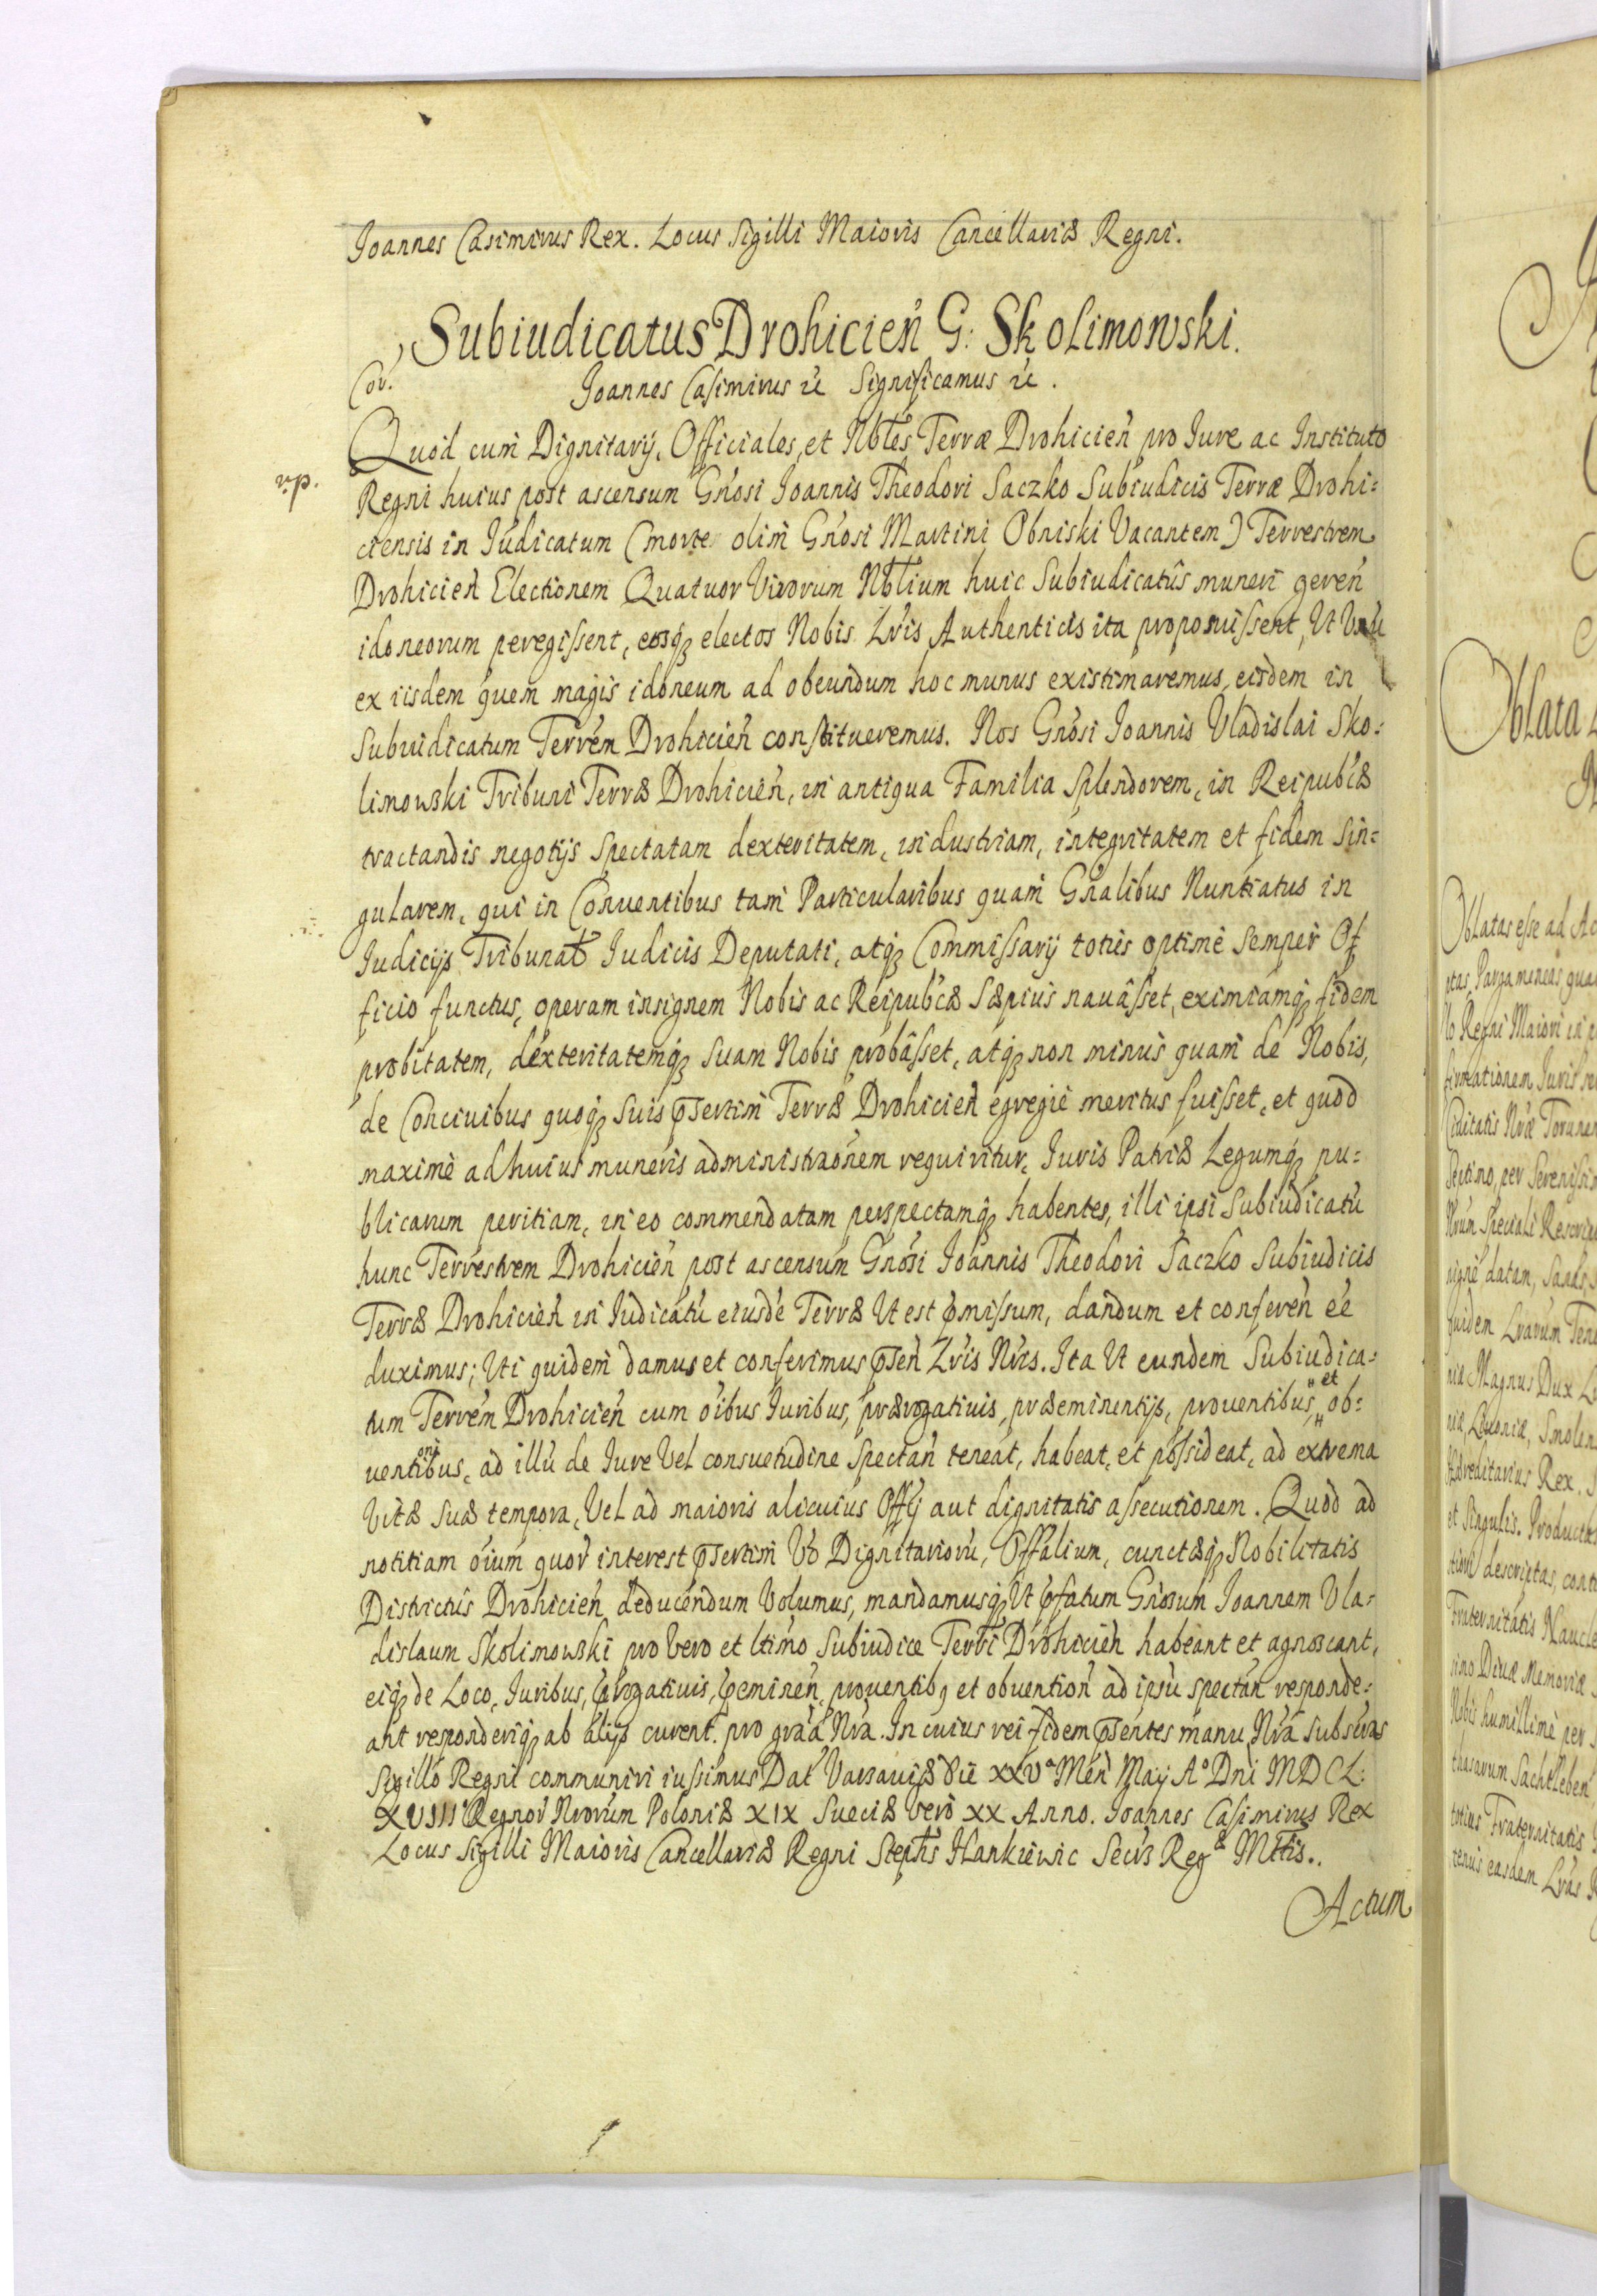 Joannes Casimirus Rex. Locus Sigilli Maioris Cancellariæ Regni.
Subiudicatus Drohicień G: Skolimowski.
Cor. Joannes Casimirus &c Significamus &c.
Quod cum Dignitarij, Officiales, et Nbles Terræ Drohicień pro Jure ac Instituto
rp.
Regni huius post ascensum Gnosi Joannis Theodori Saczko Subiudicis Terræ Drohi=
ciensis in Judicatum (morte olim Gnosi Martini Obniski Vacantem) Terrestrem
Drohicień Electionem Quatuor Virorum Nblium huic Subiudicatûs muneri geren
idoneorum peregissent, eosq; electos Nobis Lris Authenticis ita proposuissent, Ut Unū
ex iisdem quem magis idoneum ad obeundum hoc munus existimaremus, eidem in
Subiudicatum Terrem Drohicień constitueremus. Nos Gnosi Joannis Vladislai Sko=
limowski Tribuni Terræ Drohicień, in antiqua Familia Splendorem, in Reipubcæ
tractandis negotijs Spectatam dexteritatem, industriam, integritatem et fidem Sin=
gularem, qui in Conventibus tam Particularibus quam Gnalibus Nuntiatus in
Judicijs Tribunał Judicis Deputati, atq; Commissarij toties optimè Semper Of
ficio functus, operam insignem Nobis ac Reipubcæ Sæpius navâsset, eximiamq; fidem
probitatem, dexteritatemq; Suam Nobis probâsset, atq; non minus quam de Nobis,
de Concivibus quoq; Suis psertim Terræ Drohicień egregiè meritus fuisset, et quod
maximè ad huius muneris administraonem requiritur, Juris Patriæ Legumq; pu=
blicarum peritiam, in eo commendatam perspectamq; habentes, illi ipsi Subiudicatū
hunc Terrestrem Drohicień post ascensum Gnosi Joannis Theodori Saczko Subiudicis
Terræ Drohicień in Judicatū eiusdē Terræ Ut est pmissum, dandum et conferen ee
duximus; Uti quidem damus et conferimus psen Lris Nris. Ita Ut eundem Subiudica=
tum Terrem Drohicień cum oibus Juribus, prærogativis, præeminentijs, proventibus, et ob=
ventionibus, ad illū de Jure Vel consuetudine Spectan teneat, habeat, et possideat, ad extrema
Vitæ Suæ tempora, Vel ad maioris alicuius Offij aut dignitatis assecutionem. Quod ad
notitiam oium quor interest psertim Vo Dignitariorū, Offalium, cunctæq; Nobilitatis
Districtûs Drohicień deducendum Volumus, mandamusq; Ut pfatum Gnosum Joannem Vla=
dislaum Skolimowski pro Vero et Ltimo Subiudice Terri Drohicień habeant et agnoscant,
eiq; de Loco, Juribus, progativis, peminen, proventib9 et obvention ad ipsū spectan responde=
ant responderiq; ab alijs curent. pro graa Nra. In cuius rei fidem psentes manu Nra Subscras
Sigillo Regni communiri iussimus Dat Varsaviæ die XXVᵒ Men Maij Aᵒ Dni MDCL:
XVIIIᵒ Regnor Nrorum Poloniæ XIX Sueciæ Vero XX Anno. Joannes Casimirus Rex
Locus Sigilli Maioris Cancellariæ Regni Stephs Hankiewic Secrs Regæ Mttis..
Actum